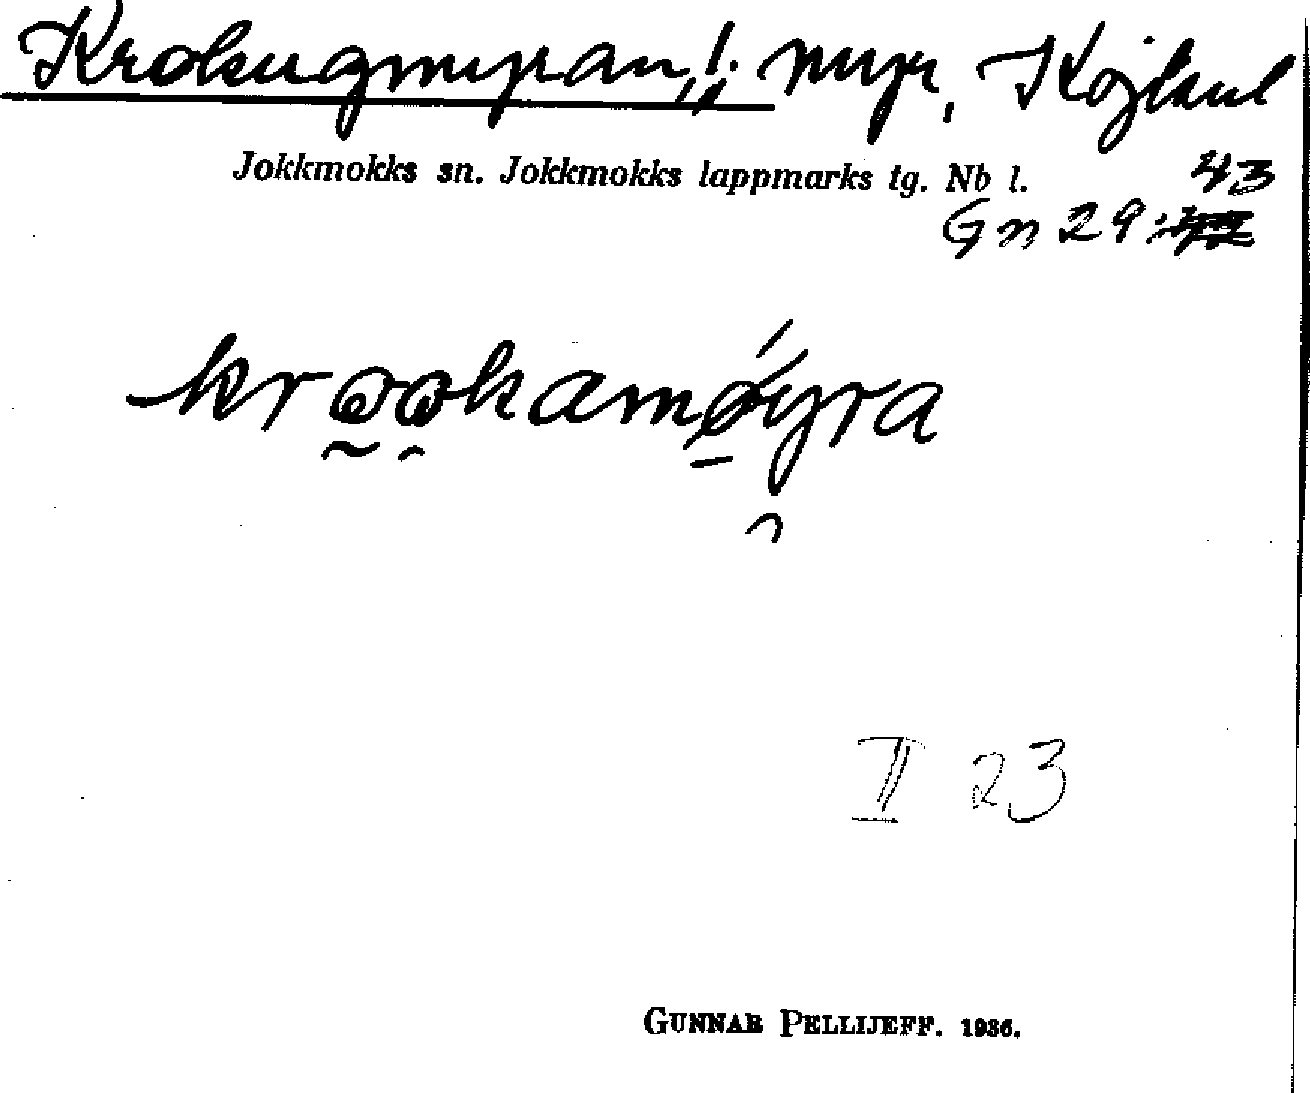 Krokugmyran,,!. myr, Kojkul
Jokkmokks sn. Jokkmokks lappmarks tg. Nb l. 43
Gn 29:
krookamøyra
II 23
GUNNAR PELLIJEFF. 1936.